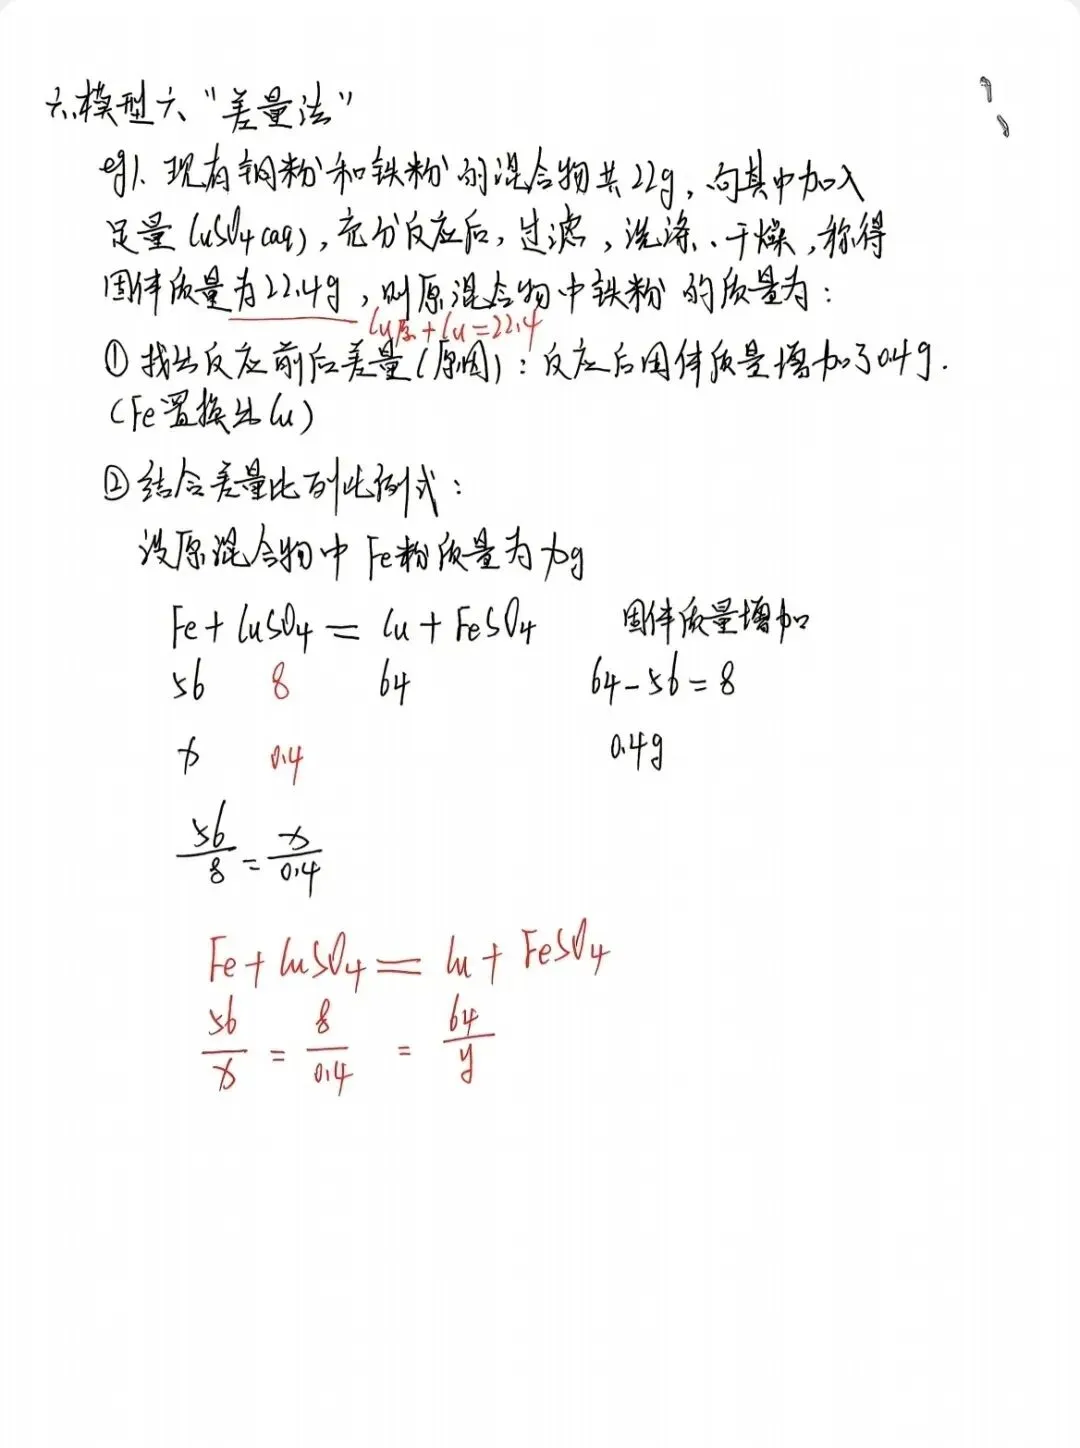 六.模型六“差量法”
eg1. 现有铜粉和铁粉的混合物共22g, 向其中加入
足量CuSO4(aq), 充分反应后, 过滤, 洗涤、干燥, 称得
固体质量为22.4g, 则原混合物中铁粉的质量为:
Cu原+Cu=22.4
①找出反应前后差量(原因): 反应后固体质量增加了0.4g.
(Fe置换出Cu)
②结合差量比列比例式:
设原混合物中Fe粉质量为xg
Fe+CuSO4=Cu+FeSO4 固体质量增加
56 8 64 64-56=8
x 0.4 0.4g
56/8=x/0.4
Fe+CuSO4=Cu+FeSO4
56/x=8/0.4=64/y